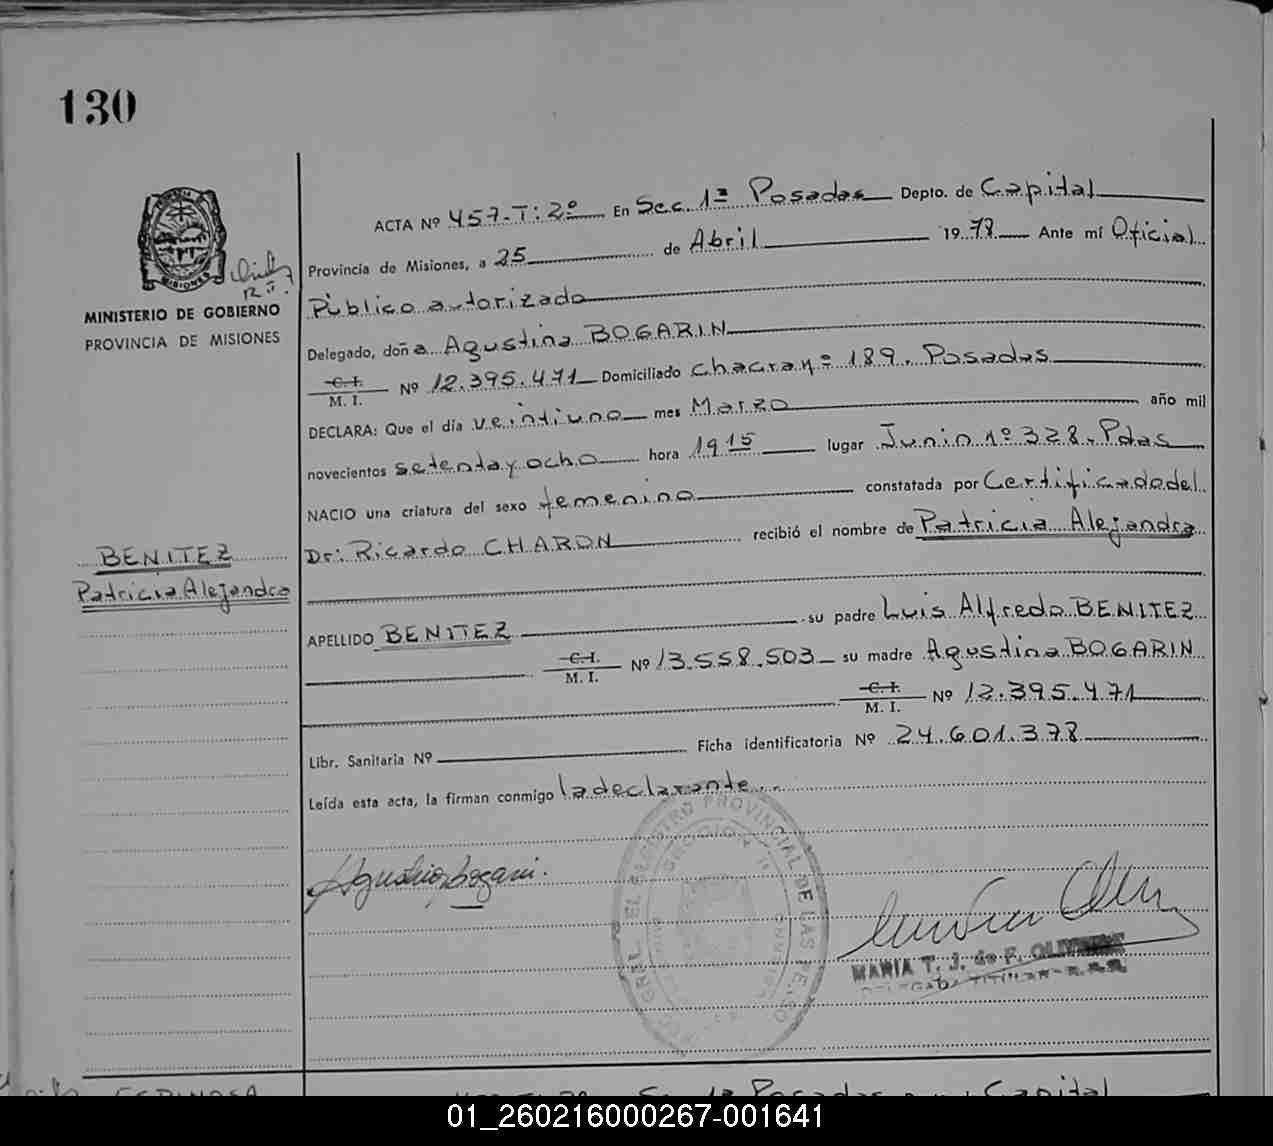 130
MINISTERIO DE GOBIERNO
PROVINCIA DE MISIONES
BENITEZ
Patricia Alejandra
ACTA Nº 457-T:2º En Sec. 1ª Posadas Depto. de Capital
Provincia de Misiones, a 25 de Abril 1978 Ante mí Oficial
Público autorizado
Delegado, doña Agustina BOGARIN
C.I. M. I. Nº 12.395.471 Domiciliado Chacra nº 189. Posadas
DECLARA: Que el día veintiuno mes Marzo año mil
novecientos setenta y ocho hora 1915 lugar Junin nº 328. Pdas
NACIO una criatura del sexo femenino constatada por Certificado del
Dr: Ricardo CHARON recibió el nombre de Patricia Alejandra
APELLIDO BENITEZ su padre Luis Alfredo BENITEZ
C.I. M. I. Nº 13.558.503 su madre Agustina BOGARIN
C.I. M. I. Nº 12.395.471
Libr. Sanitaria Nº Ficha identificatoria Nº 24.601.378
Leída esta acta, la firman conmigo la declarante..
Agustina Bogarin.
REGISTRO PROVINCIAL DE LAS PERSO
MARIA T. J. de F. OLIVEIRA
DELEGADA TITULAR
ESPINOSA
Posadas Capital
01_260216000267-001641